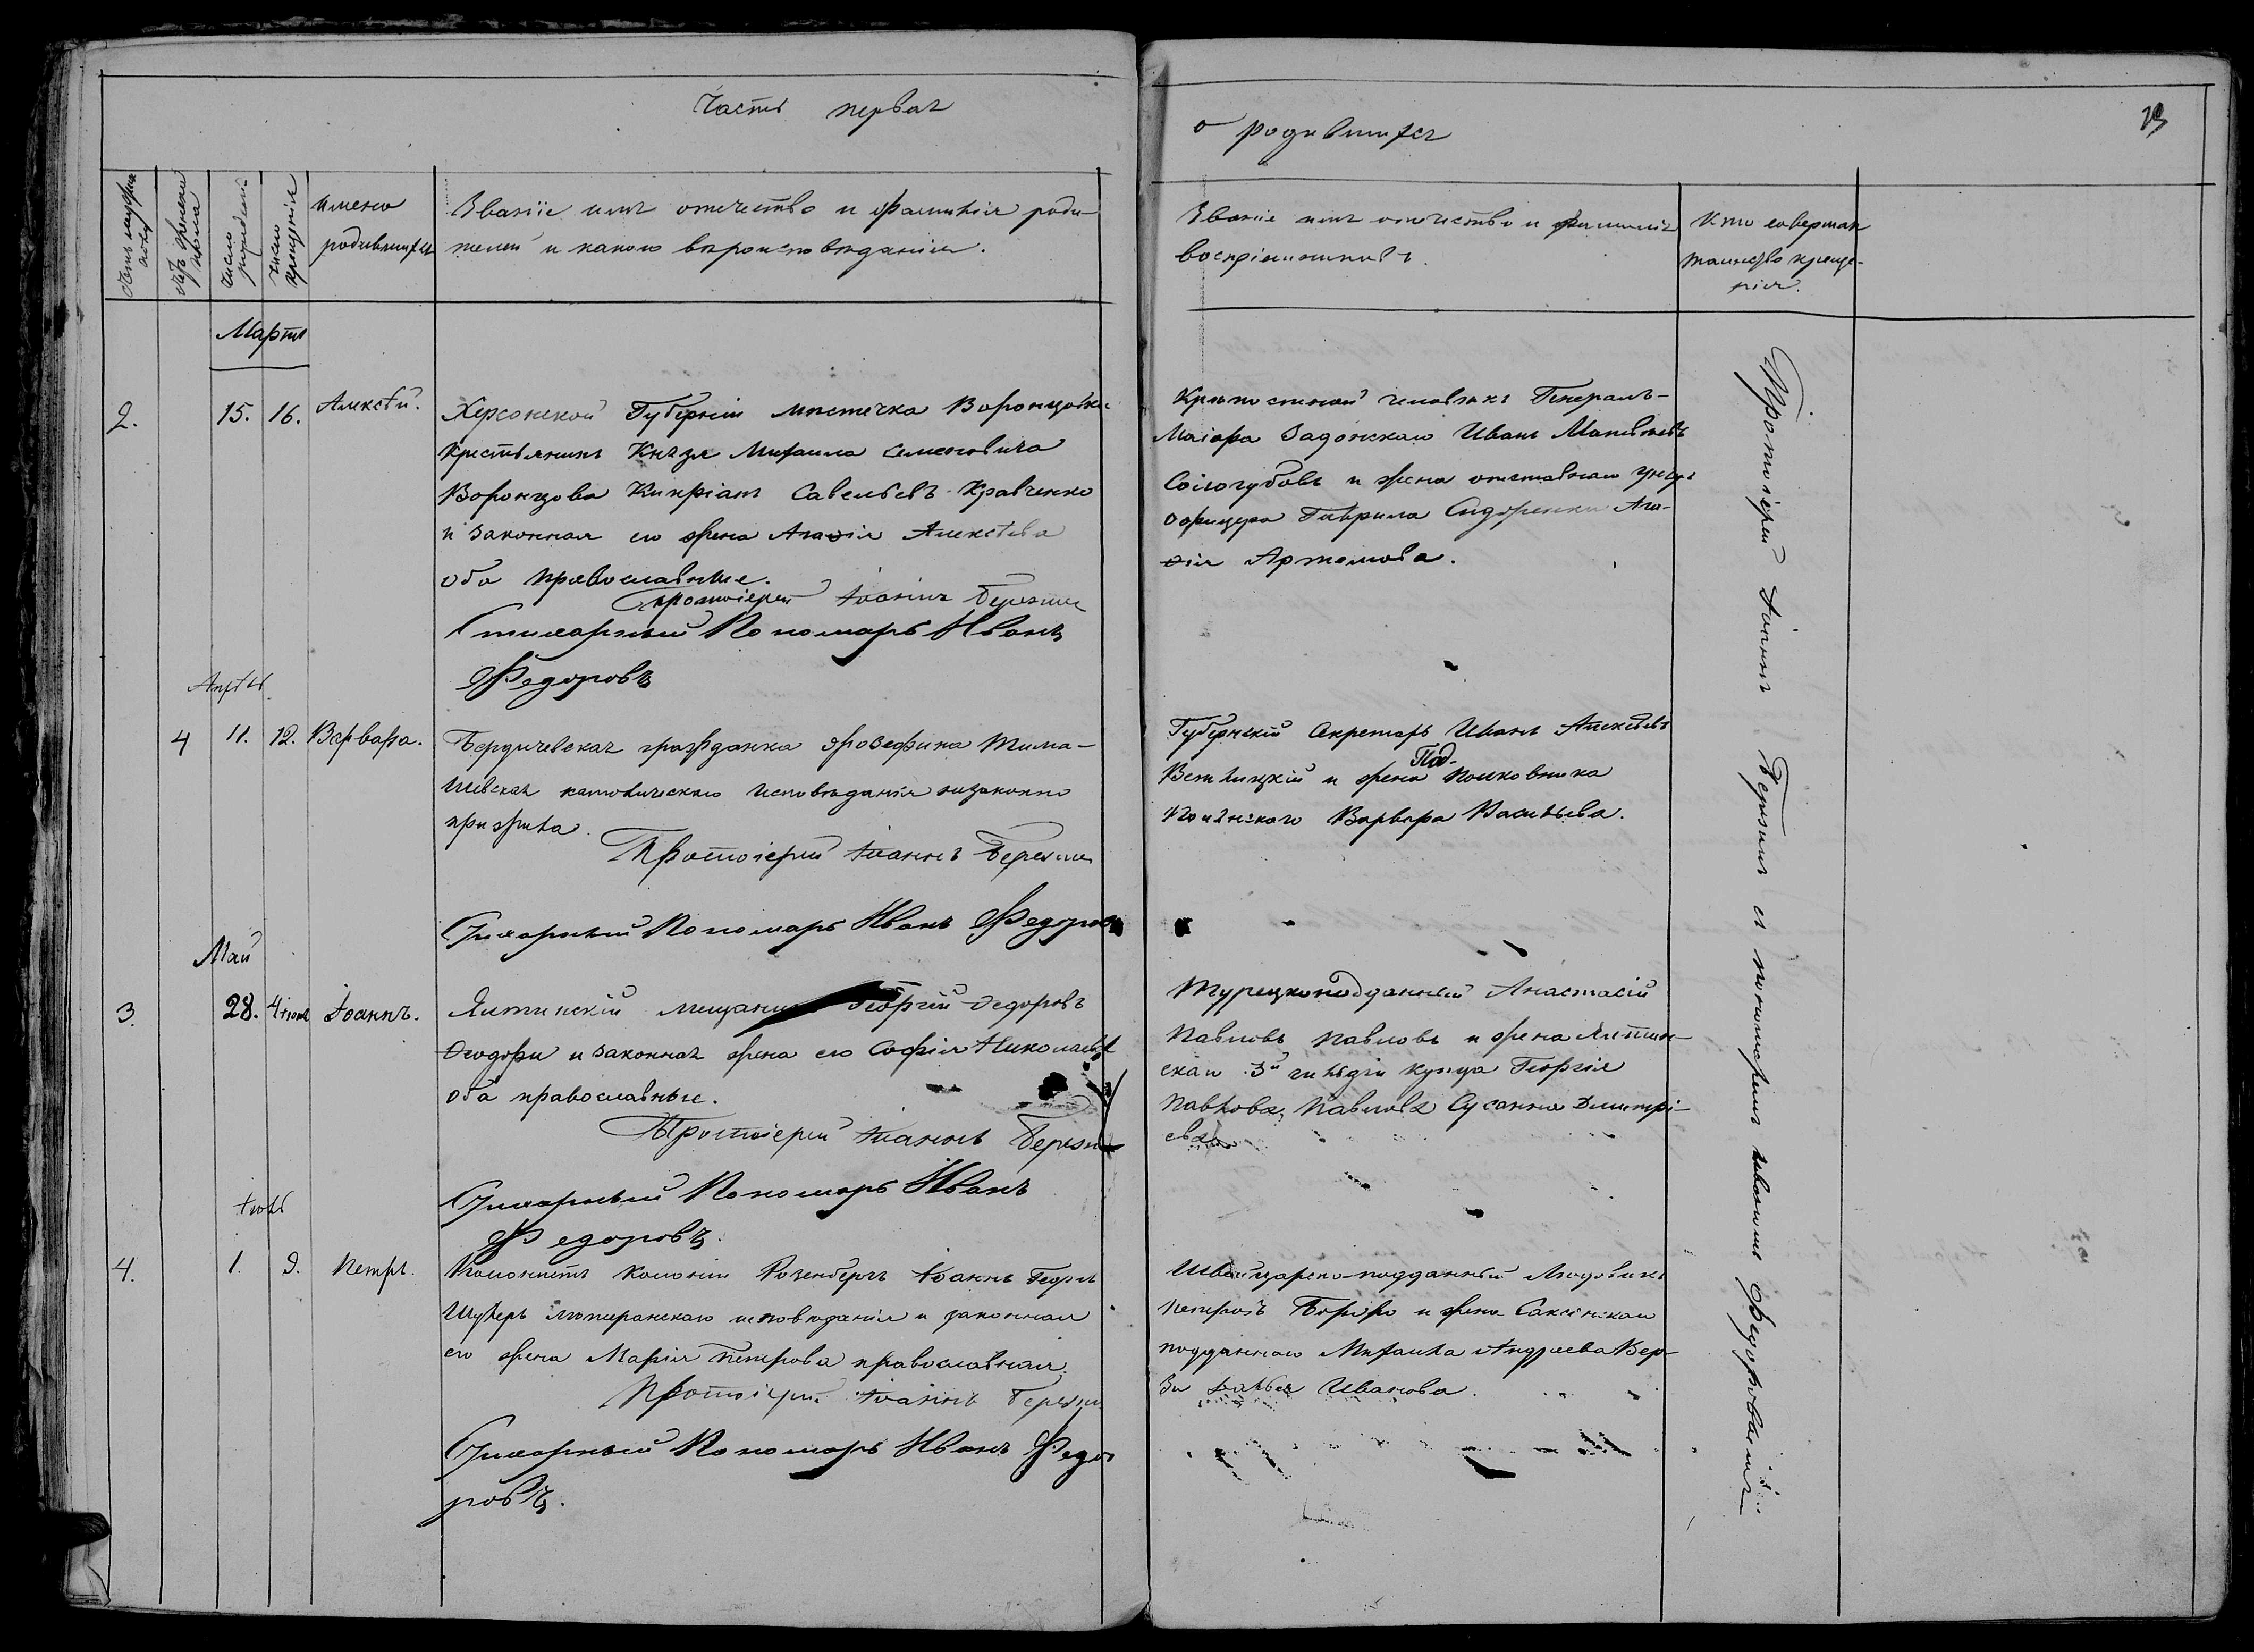 Часть первая
о родившихся
Счетъ мужеска полу
Счетъ женска пола
Число рожденія
Число крещенія
Имена
родившихся
Званіе имя отечество и фамилія роди-
телей и какого вѣроисповѣданія.
Званіе имя отечество и фамилія
воспріемниковъ.
Кто совершалъ
таинство креще-
нія.
Мартъ
2. 15. 16. Алексѣй.
Херсонской Губерніи мѣстечка Воронцовки
крестьянинъ Князя Михаила Семеновича
Воронцова Кипріанъ Савельевъ Кравченко
и законная его жена Агаѳія Алексѣева
оба православные.
Протоіерей Іоаннъ Березинъ
Стихарный Пономарь Иванъ
Федоровъ
Крѣпостной человѣкъ Генералъ-
Маіора Задонскаго Иванъ
Сологубовъ и жена отставнаго унтеръ
офицера Гаврила Сидоренки Ага-
ѳія Артемова.
Апрѣль
4 11. 12. Варвара.
Бердичевская гражданка Юзефина Тима-
шевская католическаго исповѣданія незаконно
прижита.
Протоіерей Іоаннъ Березинъ
Стихарный Пономарь Иванъ Федоровъ
Губернскій Секретарь Иванъ Алексѣевъ
Ветлицкій и жена Под-
полковника
Варвара Васильева.
Май
3. 28. 4 іюня Іоаннъ.
Ялтинскій мещанинъ Георгій Ѳедоровъ
Ѳеодори и законная жена его Софія Николаева
оба православные.
Протоіерей Іоаннъ Березинъ
Стихарный Пономарь Иванъ
Федоровъ.
Турецкоподданный Анастасій
Павловъ Павловъ и жена Ялтин-
скаго 3й гильдіи купца Георгія
Павлова, Павлова Сусанна Димитрі-
ева
Іюль
4. 1. 9. Петръ.
Колонистъ Колоніи Розенберъ Іоаннъ Георгъ
лютеранскаго исповѣданія и законная
его жена Марія Петрова православная.
Протоіерей Іоаннъ Березинъ
Стихарный Пономарь Иванъ Федо
ровъ.
Швейцарско-подданный Людовикъ
Петровъ и жена Саксонскаго
подданнаго Михаила Андреева Вер-
Иванова.
Протоіерей Іоаннъ Березинъ съ пономаремъ Иваномъ Федоровымъ